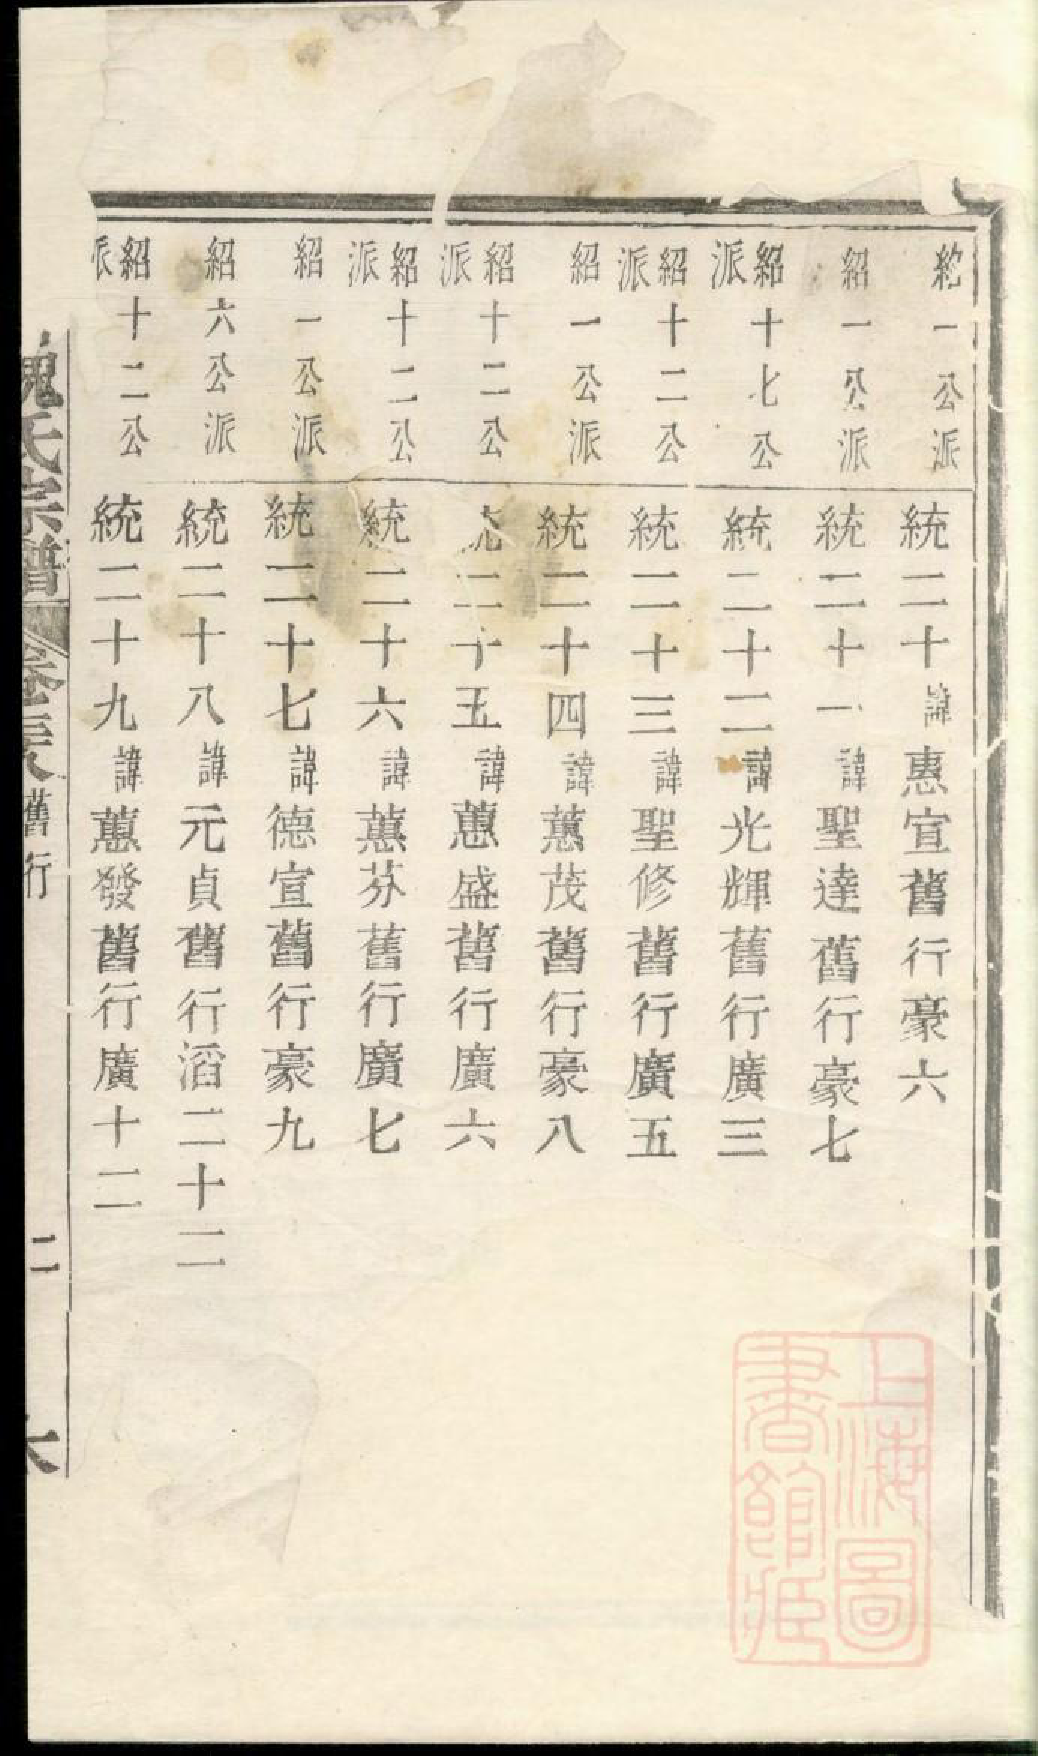 紹一公派
統二十諱惠宣舊行豪六
紹一公派
統二十一諱聖達舊行豪七
紹十七公派
統二十二諱光輝舊行廣三
紹十二公派
統二十三諱聖修舊行廣五
紹一公派
統二十四諱蕙茂舊行豪八
紹十二公派
統二十五諱蕙盛舊行廣六
紹十二公派
統二十六諱蕙芬舊行廣七
紹一公派
統二十七諱德宣舊行豪九
紹六公派
統二十八諱元貞舊行滔二十二
紹十二公派
統二十九諱蕙發舊行廣十二
魏氏宗譜
舊行
二
上海圖
書館藏